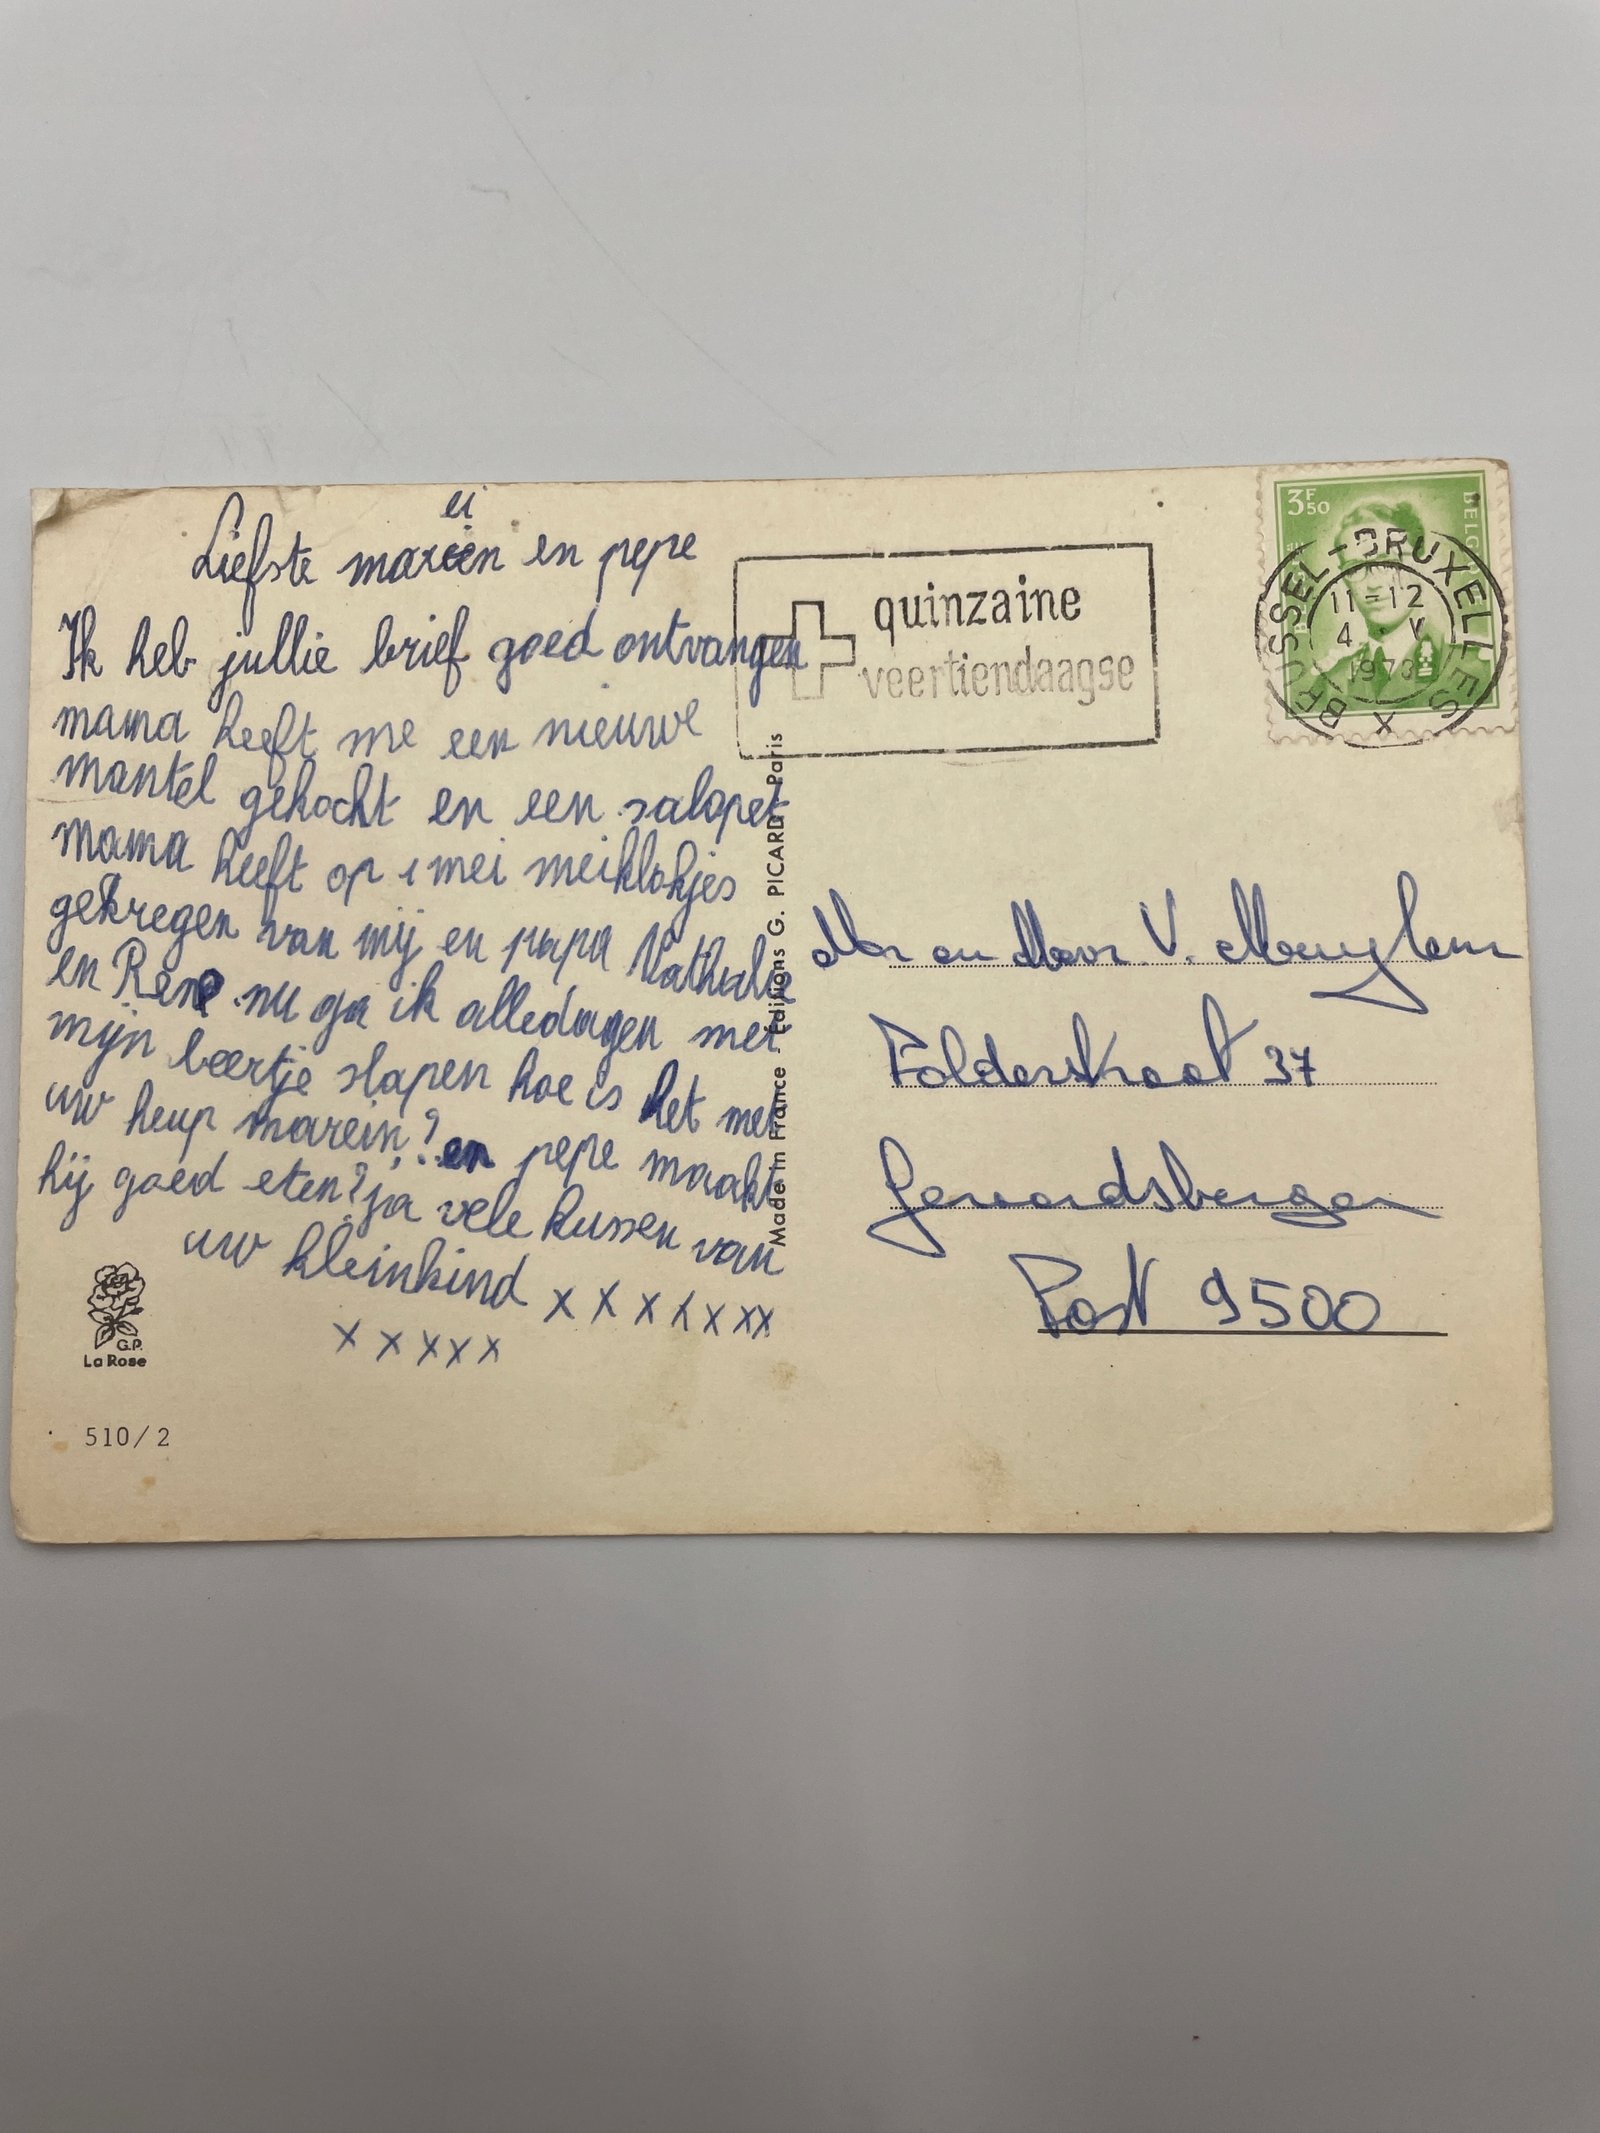 Liefste marein en pepe
ei
Ik heb jullie brief goed ontvangen
mama heeft me een nieuwe
mantel gekocht en een salopet
mama heeft op 1 mei meiklokjes
gekregen van mij en papa Nathalie
en Rene nu ga ik alledagen met
mijn beertje slapen hoe is het met
uw heup marein? en pepe maakt
hij goed eten? ja vele kussen van
uw kleinkind x x x x x x x
x x x x x
G.P.
La Rose
510/2
Made in France - Éditions G. PICARD - Paris
quinzaine
veertiendaagse
3F50
BELG
BRUSSEL-BRUXELLES
11-12
4 V
1973
X
en V.
Polderstraat 37
Geraardsbergen
Post 9500